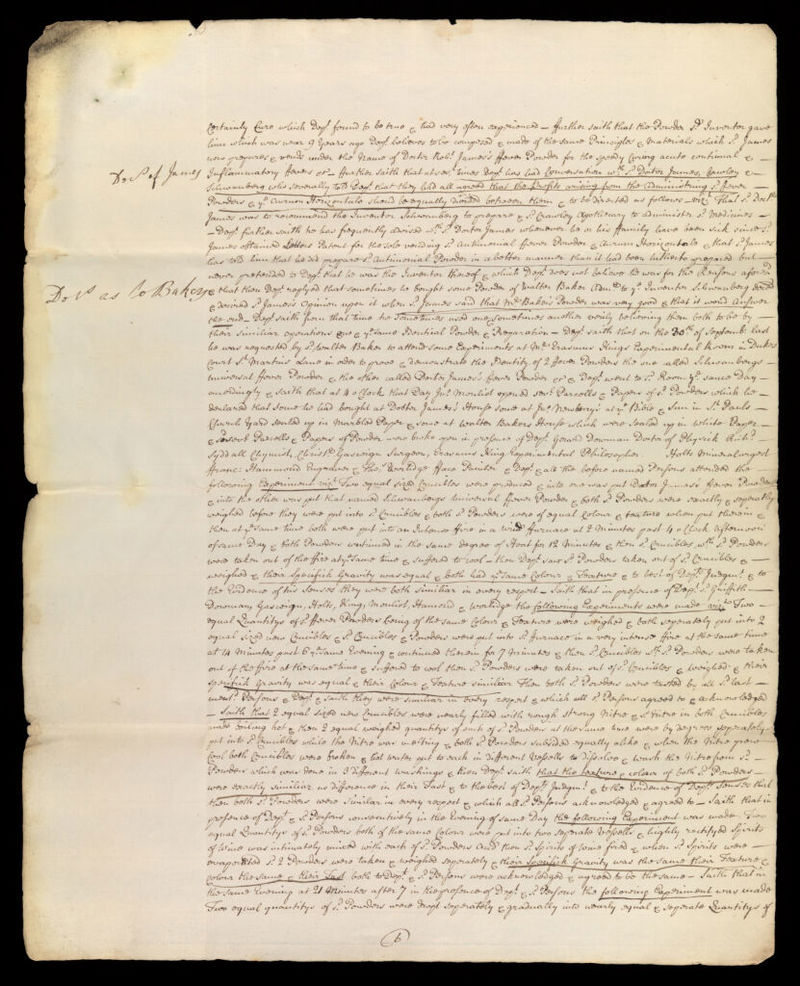 Certainly Cure which Dep.t found to be true & had very often experienced – further saith that the Powder s.d Inventor gave
him which was near 9 Years ago Dep.t believes to be composed & made of the same Principles & Materials which s.d James
now prepares & vends under the Name of Doctor Rob.t James's ffever Powder for the speedy Curing acute continual & –
Do s of James
Inflammatory fevers &c – further saith that at sev.l times Dep.t has had Conversation w.th s.d Doctor James, Crawley & –
Schwanberg who severally told Dep.t that they had all agreed that the Profits arising from the administring s.d fever –
Powders & y.e Aurum Horizontale should be equally divided between them & to be directed as follows – viz.t That s.d Doct.r
James was to recommend the Inventor Schwanberg to prepare & s.d Crawley Apothecary to administer s.d Medicines –
– Dep.t further saith he has frequently advised w.th s.d Doctor James whenever he or his ffamily have been sick since s.d
James obtained Letters Patent for the sole vending s.d Antimonial ffever Powder & Aurum Horizontale & that s.d James
has told him that he did prepare s.d Antimonial Powder in a better manner than it had been hitherto prepared but –
never pretended to Dep.t that he was the Inventor thereof & which Dep.t does not believe he was for the Reasons afores.d
Do v.s as to Baker
& that then Dep.t replyed that sometimes he bought some Powder of Walter Baker Adm.r to y.e Inventor Schwanberg
& desired s.d James's Opinion upon it when s.d James said that M.r Baker's Powder was very good & that it woud Answer
the end – Dep.t saith from that time he sometimes used one sometimes another verily believing them both to be by –
their similiar operations one & y.e same Identical Powder & Preparation – Dep.t saith that on the 20.th of Septemb.r last
he was requested by s.d Walter Baker to attend some Experiments at M.r Erasmus King's Experimental Room in Dukes
Court S.t Martins Lane in order to prove & demonstrate the Identity of 2 ffever Powders the one called Schwanbergs –
Universal ffever Powder & the other called Doctor James's ffever Powder &c & Dep.t went to s.d Room y.e same Day –
accordingly & saith that at 4 o Clock that Day Jn.o Mouliot opened sev.l Parcells & Papers of s.d Powders which he –
declared that some he had bought at Doctor James's House some at Jn.o Newbery's at y.e Bible & Sun in S.t Pauls –
Church Yard sealed up in Marbled Paper & some at Walter Bakers House which were sealed up in White Paper –
& several Parcells & Papers of Powder were broke open in presence of Dep.t Gerard Dowman Doctor of Physick Rich.d –
Sydall Chymist, Christ.r Gascoign Surgeon, Erasmus King Experimental Philosopher. Holts Mineralurgist
ffranc: Hammond Engraver & Tho.s Worlidge fface Painter & Dep.t & all the before named Persons attended the –
following Experiment viz.t Two equal sized Crucibles were produced & into one was put Doctor James's ffever Powder
& into the other was put that named Schwanbergs Universal ffever Powder & both s.d Powders were exactly & seperately
weighed before they were put into s.d Crucibles & both s.d Powders were of equal Colour & texture when put therein &
then at y.e same time both were put into an Intense ffire in a wind furnace at 2 Minutes past 4 o Clock afternoon
of same Day & both Powders continued in the same degree of Heat for 12 Minutes & then s.d Crucibles w.th s.d Powders
were taken out of the ffire at y.e same time & suffered to cool – then Dep.t saw s.d Powders taken out of s.d Crucibles & –
weighed & their Specifick Gravity was equal & both had y.e same Colour & Texture & to best of Dep.ts Judgm.t & to
the Evidence of his Senses they were both similiar in every respect – Saith that in presence of Dep.t s.d Griffith –
Dowman, Gascoign, Holts, King, Mouliot, Hamond & Worlidge the following Experiments were made viz.t Two –
equal Quantitys of s.d ffever Powders being of the same Colour & Texture were weighed & both seperately put into 2
equal sized new Crucibles & s.d Crucibles & Powders were put into s.d furnace in a very intense ffire at the same time
at 14 Minutes past 6 y.e same Evening & continued therein for 7 Minutes & then s.d Crucibles w.th s.d Powders were taken
out of the ffire at the same time & suffered to cool then s.d Powders were taken out of s.d Crucibles & weighed & their
specifick Gravity was equal & their Colour & Texture similiar then both s.d Powders were tasted by all s.d last –
ment.d Persons & Dep.t & saith they were similiar in every respect & which all s.d Persons agreed to & acknowledged
– Saith that 2 equal sized new Crucibles were nearly filled with rough strong Nitre & s.d Nitre in both Crucibles
made boiling hot & then 2 equal weighed quantitys of each of s.d Powders at the same time were by degrees seperately
put into s.d Crucibles while the Nitre was melting & both s.d Powders subsided equally alike & when the Nitre grew –
Cool both Crucibles were broken & hot water put to each in different Vessells to dissolve & wash the Nitre from s.d –
Powders which was done in 3 different washings & then Dep.t saith that the texture & colour of both s.d Powders –
were exactly similiar no difference in their Tast & to the best of Dep.ts Judgm.t & to the Evidence of Dep.ts Senses that
then both s.d Powders were similiar in every respect & which all s.d Persons acknowledged & agreed to – Saith that in
presence of Dep.t & s.d Persons consecutively in the Evening of same Day the following Experiment was made – Two
equal Quantitys of s.d Powders both of the same Colour were put into two seperate Vessells & highly rectifyed Spirits
of Wine was intimately mixed with each of s.d Powders And then s.d Spirits of Wine fired & when s.d Spirits were –
evaporated s.d 2 Powders were taken & weighed seperately & their Specifick Gravity was the same their Texture &
Colour the same & their Tast both to Dep.t & s.d Persons were acknowledged & agreed to be the same – Saith that in
the same Evening at 21 Minutes after 7 in the presence of Dep.t & s.d Persons the following Experiment was made
Two equal quantitys of s.d Powders were dropt seperately & gradually into nearly equal & seperate Quantitys of
6